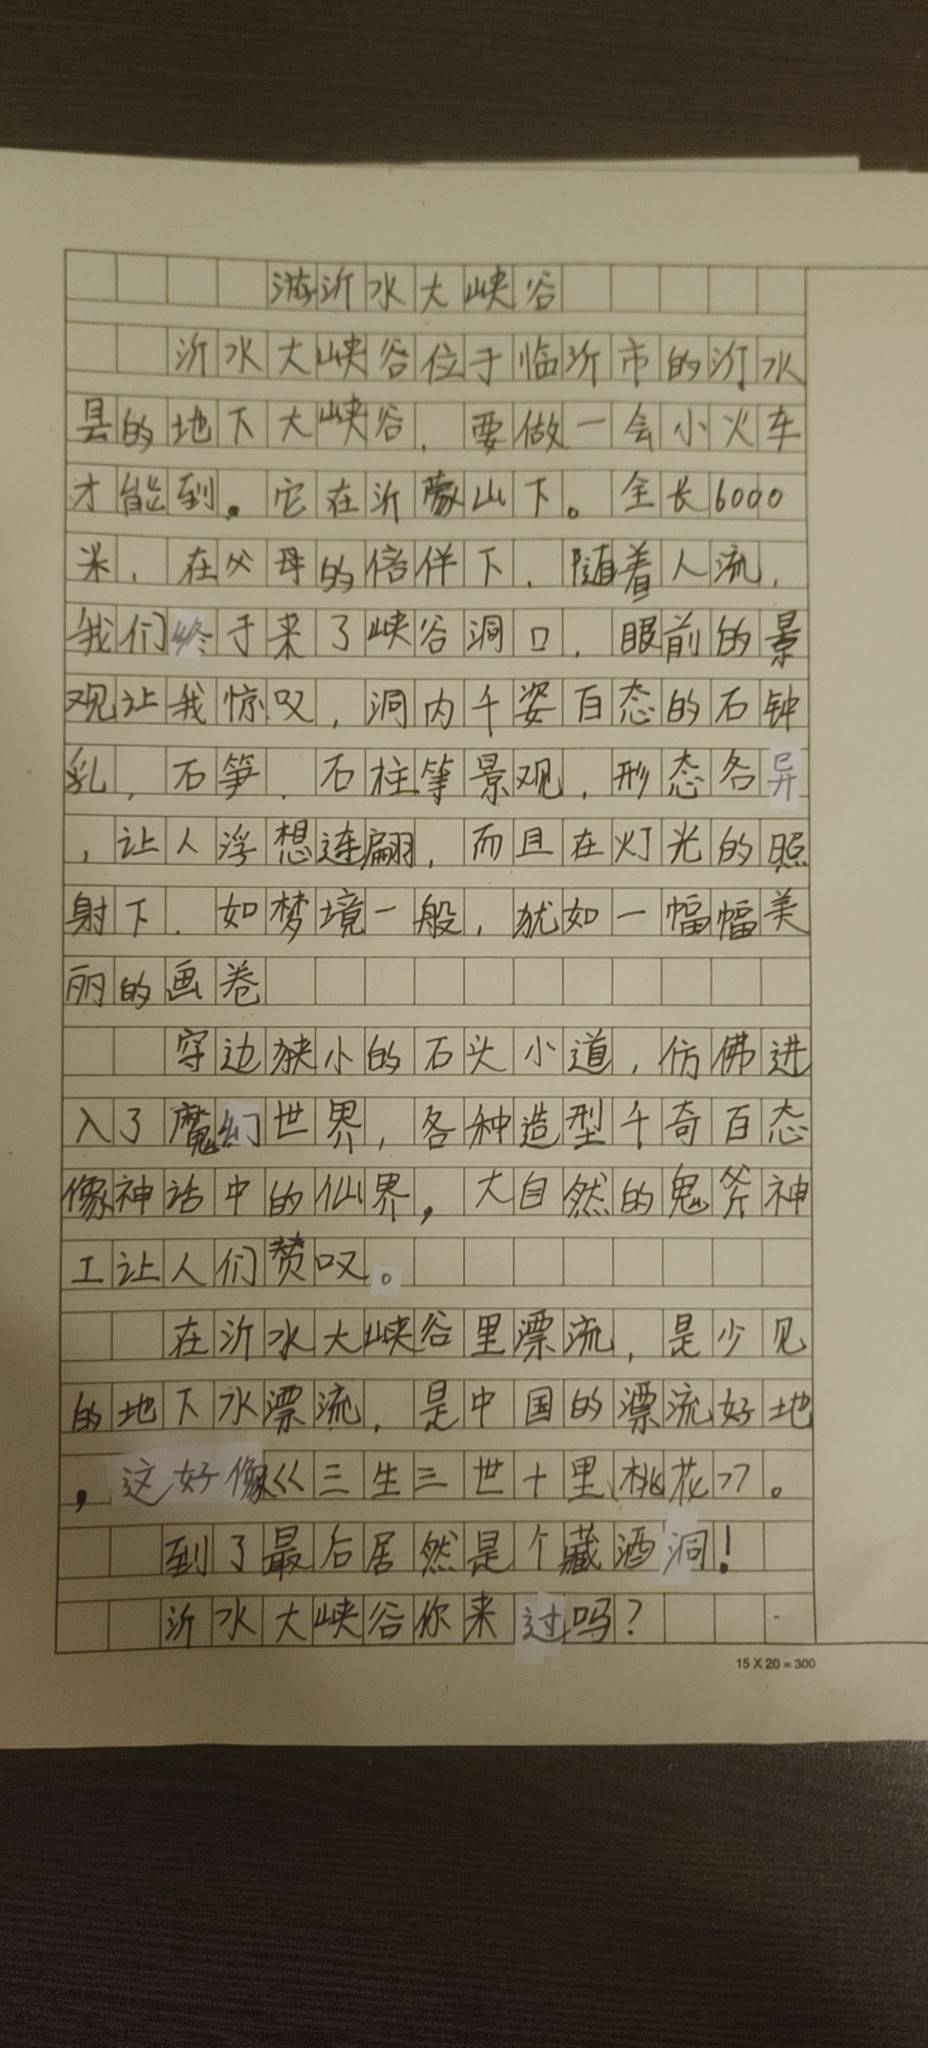 游沂水大峡谷
沂水大峡谷位于临沂市的沂水
县的地下大峡谷，要做一会小火车
才能到。它在沂蒙山下。全长6000
米，在父母的陪伴下，随着人流，
我们终于来了峡谷洞口，眼前的景
观让我惊叹，洞内千姿百态的石钟
乳，石笋、石柱等景观，形态各异
，让人浮想连翩，而且在灯光的照
射下，如梦境一般，犹如一幅幅美
丽的画卷
穿边狭小的石头小道，仿佛进
入了魔幻世界，各种造型千奇百态
像神话中的仙界，大自然的鬼斧神
工让人们赞叹。
在沂水大峡谷里漂流，是少见
的地下水漂流，是中国的漂流好地
，这好像《三生三世十里桃花》。
到了最后居然是个藏酒洞！
沂水大峡谷你来过吗？
15 X 20 = 300